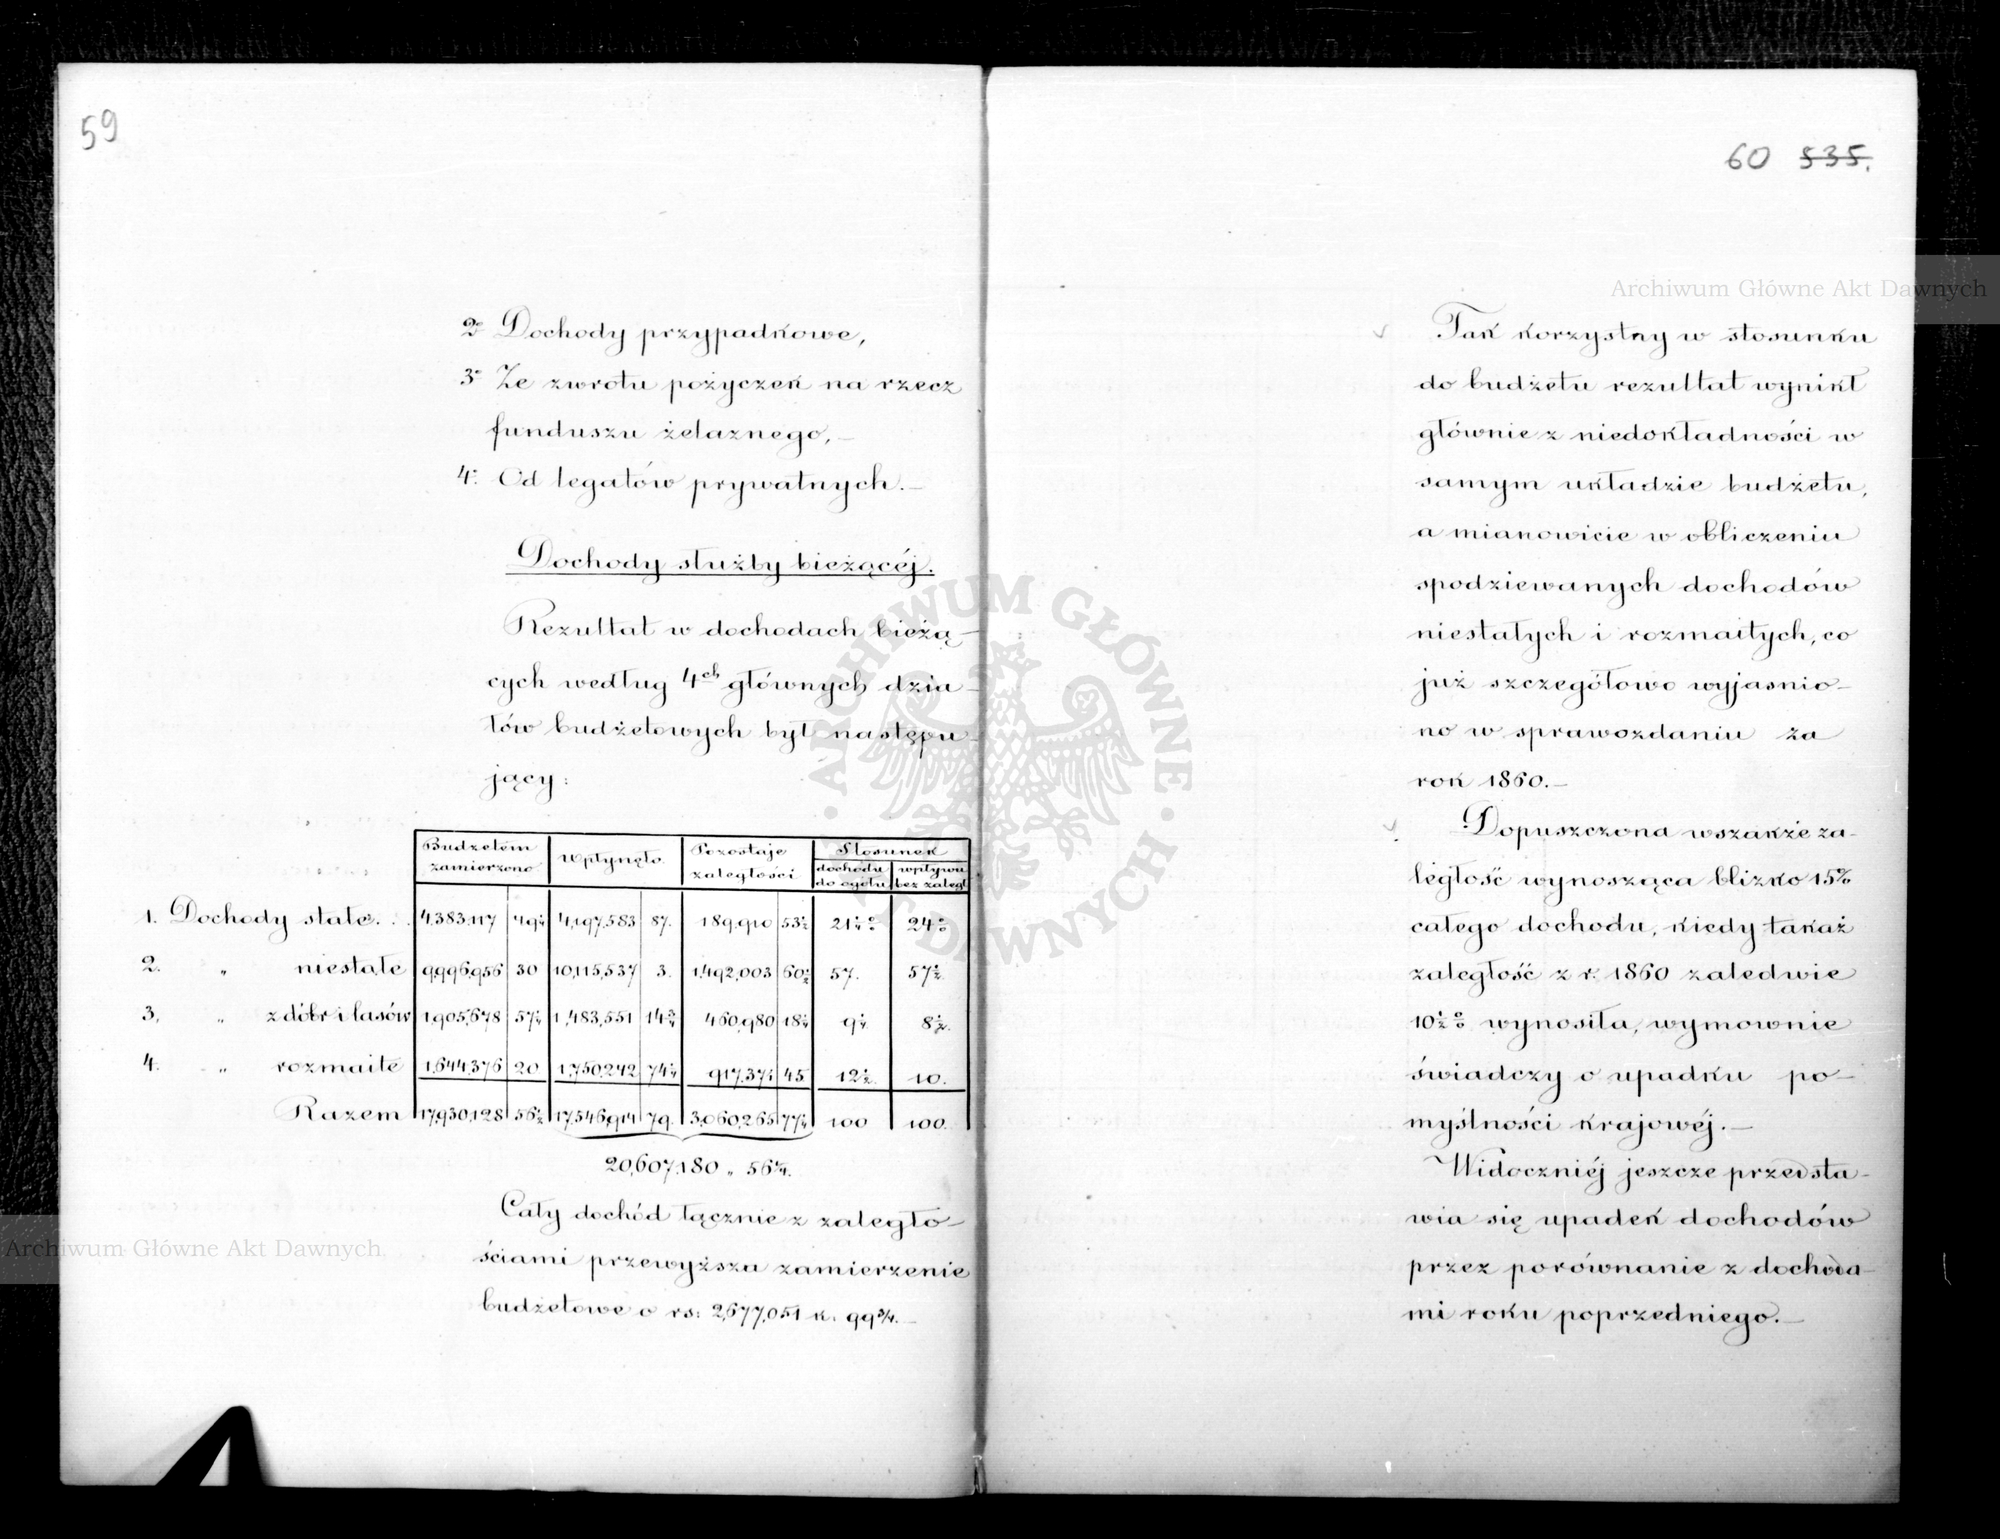 59
2° Dochody przypadkowe,
3° Ze zwrotu pożyczek na rzecz
funduszu żelaznego,—
4° Od legatów prywatnych.—
Dochody służby bieżącéj.
Rezultat w dochodach bieżą—
cych według 4ch głównych dzia—
łów budżetowych był następu—
jący:
Budżetem zamierzono | Wpłynęło. | Pozostaje zaległości | Stosunek
dochodu do ogółu | wpływu bez zaległ.
1. Dochody stałe. . . 4,383,117 | 49¼ | 4,197,583 | 87. | 189,910 | 53½ | 21¼% | 24%
2. „ niestałe 9,996,956 | 30 | 10,115,537 | 3. | 1,492,003 | 60½ | 57. | 57½.
3. „ z dóbr i lasów 1,905,678 | 57¼ | 1,483,551 | 14¾ | 460,980 | 18¼ | 9¼ | 8½.
4. „ rozmaite 1,644,376 | 20 | 1,750,242 | 74¼ | 917,371 | 45 | 12½. | 10.
Razem 17,930,128 | 56½ | 17,546,914 | 79. | 3,060,265 | 77¼ | 100 | 100.
20,607,180 „ 56¼.
Cały dochód łącznie z zaległo—
ściami przewyższa zamierzenie
budżetowe o rs: 2,677,051 k. 99¾.—
60 535.
Tak korzystny w stosunku
do budżetu rezultat wynikł
głównie z niedokładności w
samym układzie budżetu,
a mianowicie w obliczeniu
spodziewanych dochodów
niestałych i rozmaitych, co
już szczegółowo wyjasnio—
no w sprawozdaniu za
rok 1860.—
Dopuszczona wszakże za—
ległość wynosząca blizko 15%
całego dochodu, kiedy takaż
zaległość z r. 1860 zaledwie
10½% wynosiła, wymownie
świadczy o upadku po—
myślności krajowéj.—
Widoczniéj jeszcze przedsta—
wia się upadek dochodów
przez porównanie z dochoda—
mi roku poprzedniego.—
Archiwum Główne Akt Dawnych
Archiwum Główne Akt Dawnych
ARCHIWUM GŁÓWNE AKT DAWNYCH